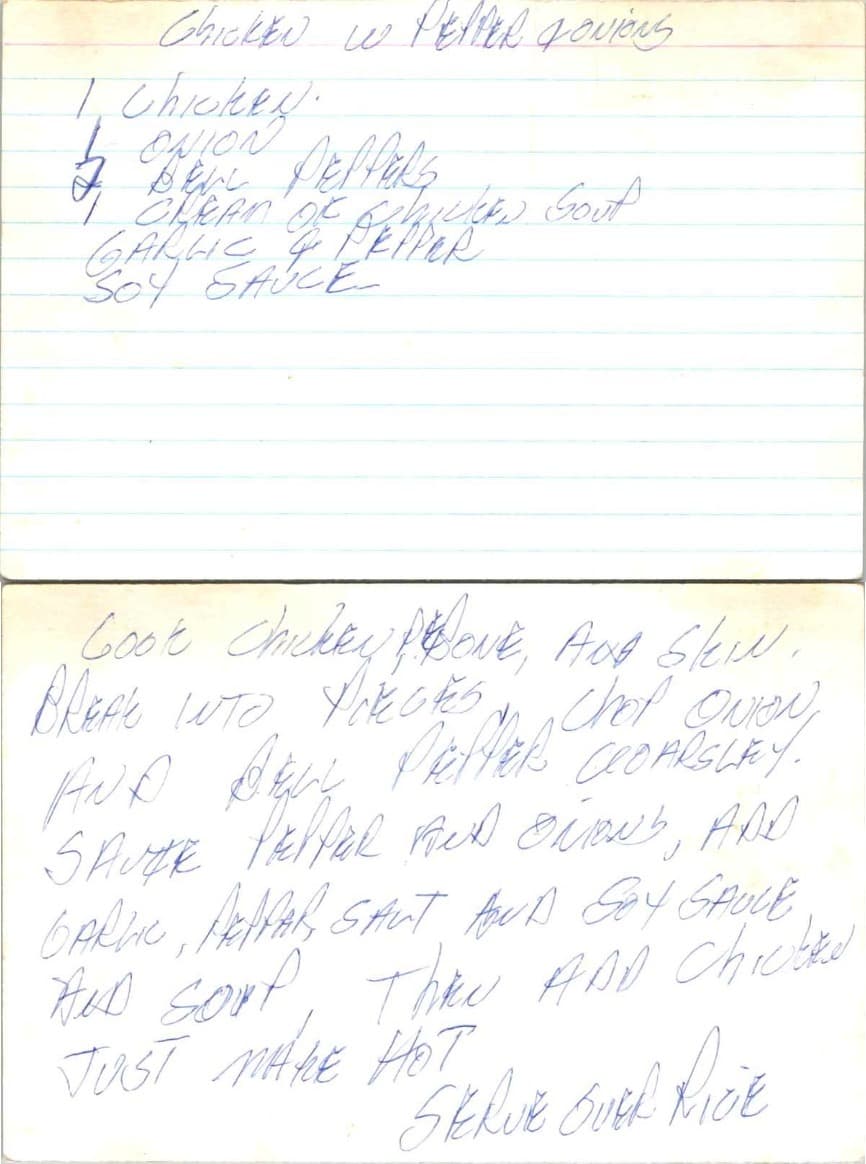 Chicken w Pepper & onions
1 Chicken.
1 Onion
2 Bell Peppers
1 Cream of Chicken Soup
Garlic & Pepper
Soy Sauce
Cook Chicken, DeBone, And Skin.
Break into Pieces, Chop Onion
And Bell Pepper Coarsley.
Sautee Pepper and Onions, Add
Garlic, Peppar, Salt And Soy Sauce,
And Soup, Then Add Chicken
Just Make Hot
Serve Over Rice